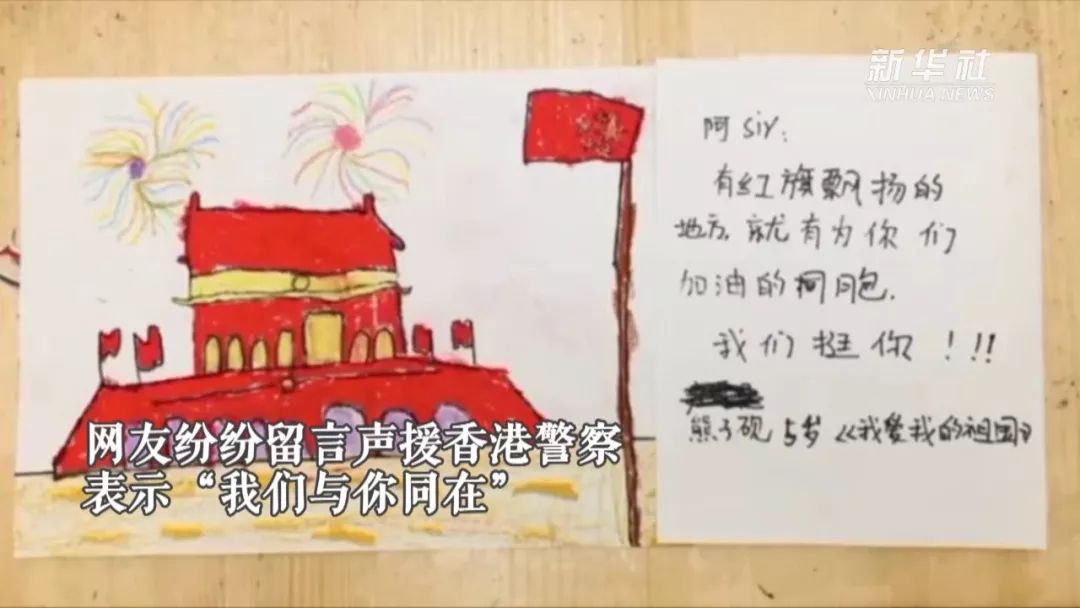 新华社
XINHUA NEWS
阿sir:
有红旗飘扬的
地方,就有为你们
加油的同胞.
我们挺你!!!
熊子砚 5岁《我爱我的祖国》
网友纷纷留言声援香港警察
表示“我们与你同在”